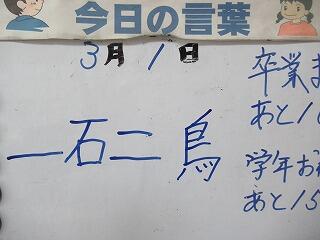 今日の言葉
3月1日
一石二鳥
卒業ま
あと1
学年お
あと15